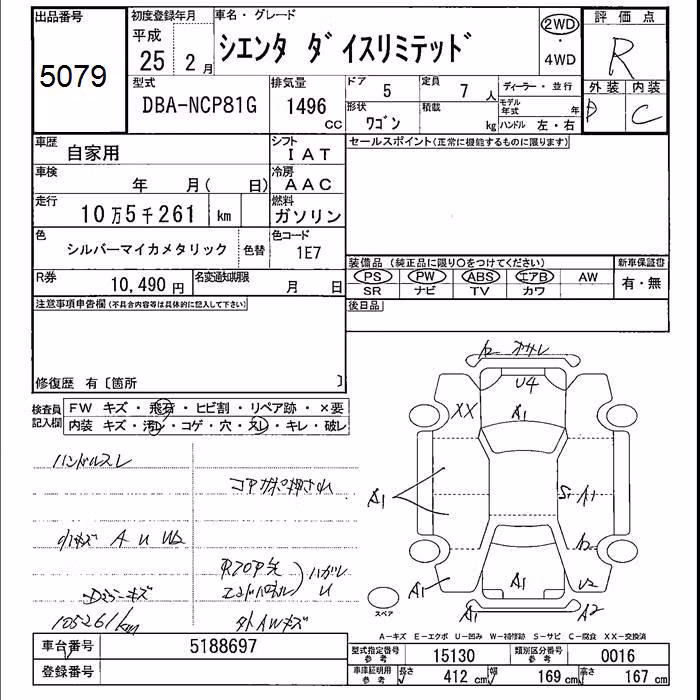 出品番号
5079
初度登録年月
平成
25 2月
車名・グレード
シエンタ ダイスリミテッド
2WD
・
4WD
評価点
R
外装 内装
D C
型式
DBA-NCP81G
排気量
1496
CC
ドア
5
定員
7 人
ディーラー・並行
形状
ワゴン
積載
kg
モデル年式 年
ハンドル 左・右
車歴
自家用
シフト
IAT
車検
年 月( 日)
冷房
AAC
走行
10万5千261 km
燃料
ガソリン
色
シルバーマイカメタリック
色替
色コード
1E7
R券
10,490 円
名変通知期限
月 日
セールスポイント(正常に機能するものに限ります)
装備品 (純正品に限り〇をつけてください)
PS PW ABS エアB AW
SR ナビ TV カワ
新車保証書
有・無
後日品
注意事項申告欄(不具合内容等は具体的に記入して下さい)
修復歴 有〔箇所 〕
検査員記入欄
FW キズ・飛石・ヒビ割・リペア跡・×要
内装 キズ・汚レ・コゲ・穴・スレ・キレ・破レ
ハンドルスレ
コアサポ押され
小キズ A U W2
ダッシュキズ
105261km
エンドパネル
ハガレ
U
タイAWキズ
U4
XX
A1
A1
S1 A1
A1
A1
U2
A1
A2
スペア
A-キズ E-エクボ U-凹み W-補修跡 S-サビ C-腐食 XX-交換済
車台番号
5188697
登録番号
型式指定番号
参考
15130
類別区分番号
参考
0016
車庫証明用
参考
長さ
412 cm
幅
169 cm
高さ
167 cm